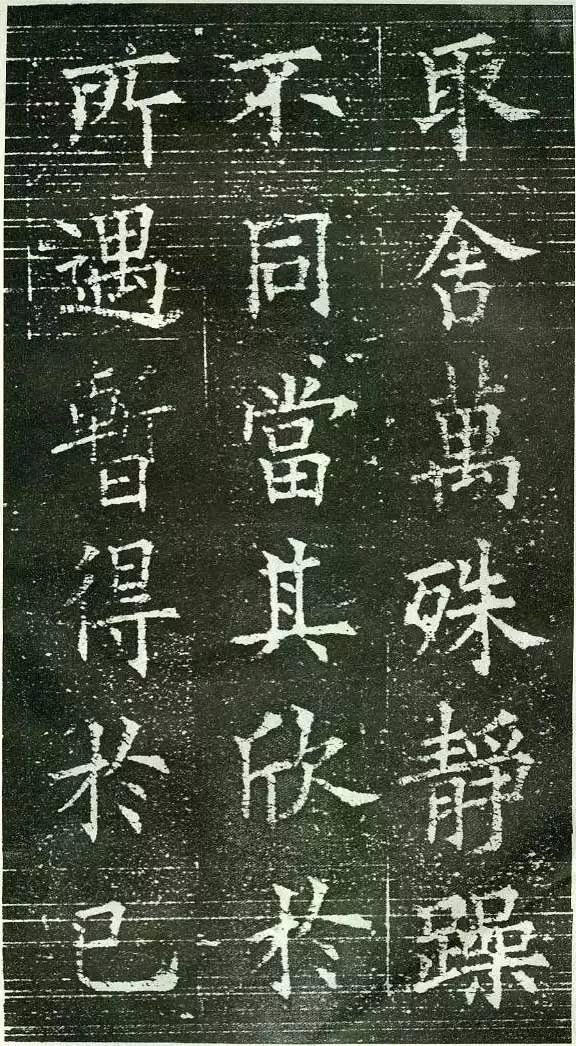 取舍萬殊靜躁
不同當其欣於
所遇暫得於己